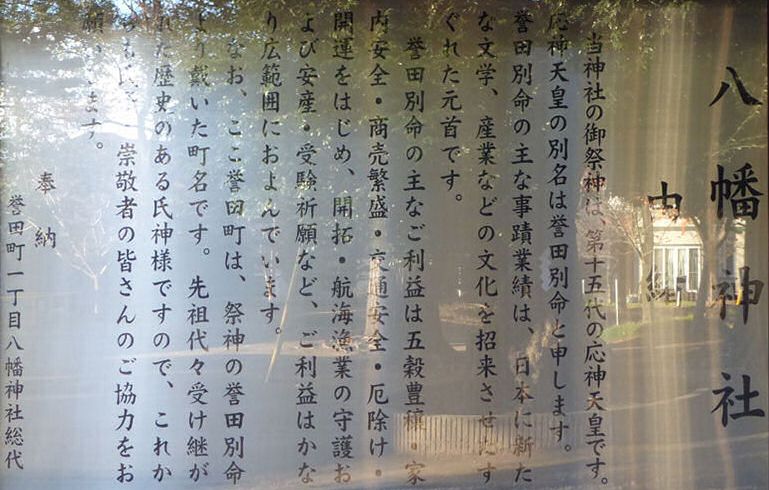 八幡神社
由緒
当神社の御祭神は、第十五代の応神天皇です。
応神天皇の別名は誉田別命と申します。
誉田別命の主な事蹟業績は、日本に新た
な文学、産業などの文化を招来させたす
ぐれた元首です。
誉田別命の主なご利益は五穀豊穣・家
内安全・商売繁盛・交通安全・厄除け・
開運をはじめ、開拓・航海漁業の守護お
よび安産・受験祈願など、ご利益はかな
り広範囲におよんでいます。
なお、ここ誉田町は、祭神の誉田別命
より戴いた町名です。先祖代々受け継が
れた歴史のある氏神様ですので、これか
崇敬者の皆さんのご協力をお
願います。
奉納
誉田町一丁目八幡神社総代